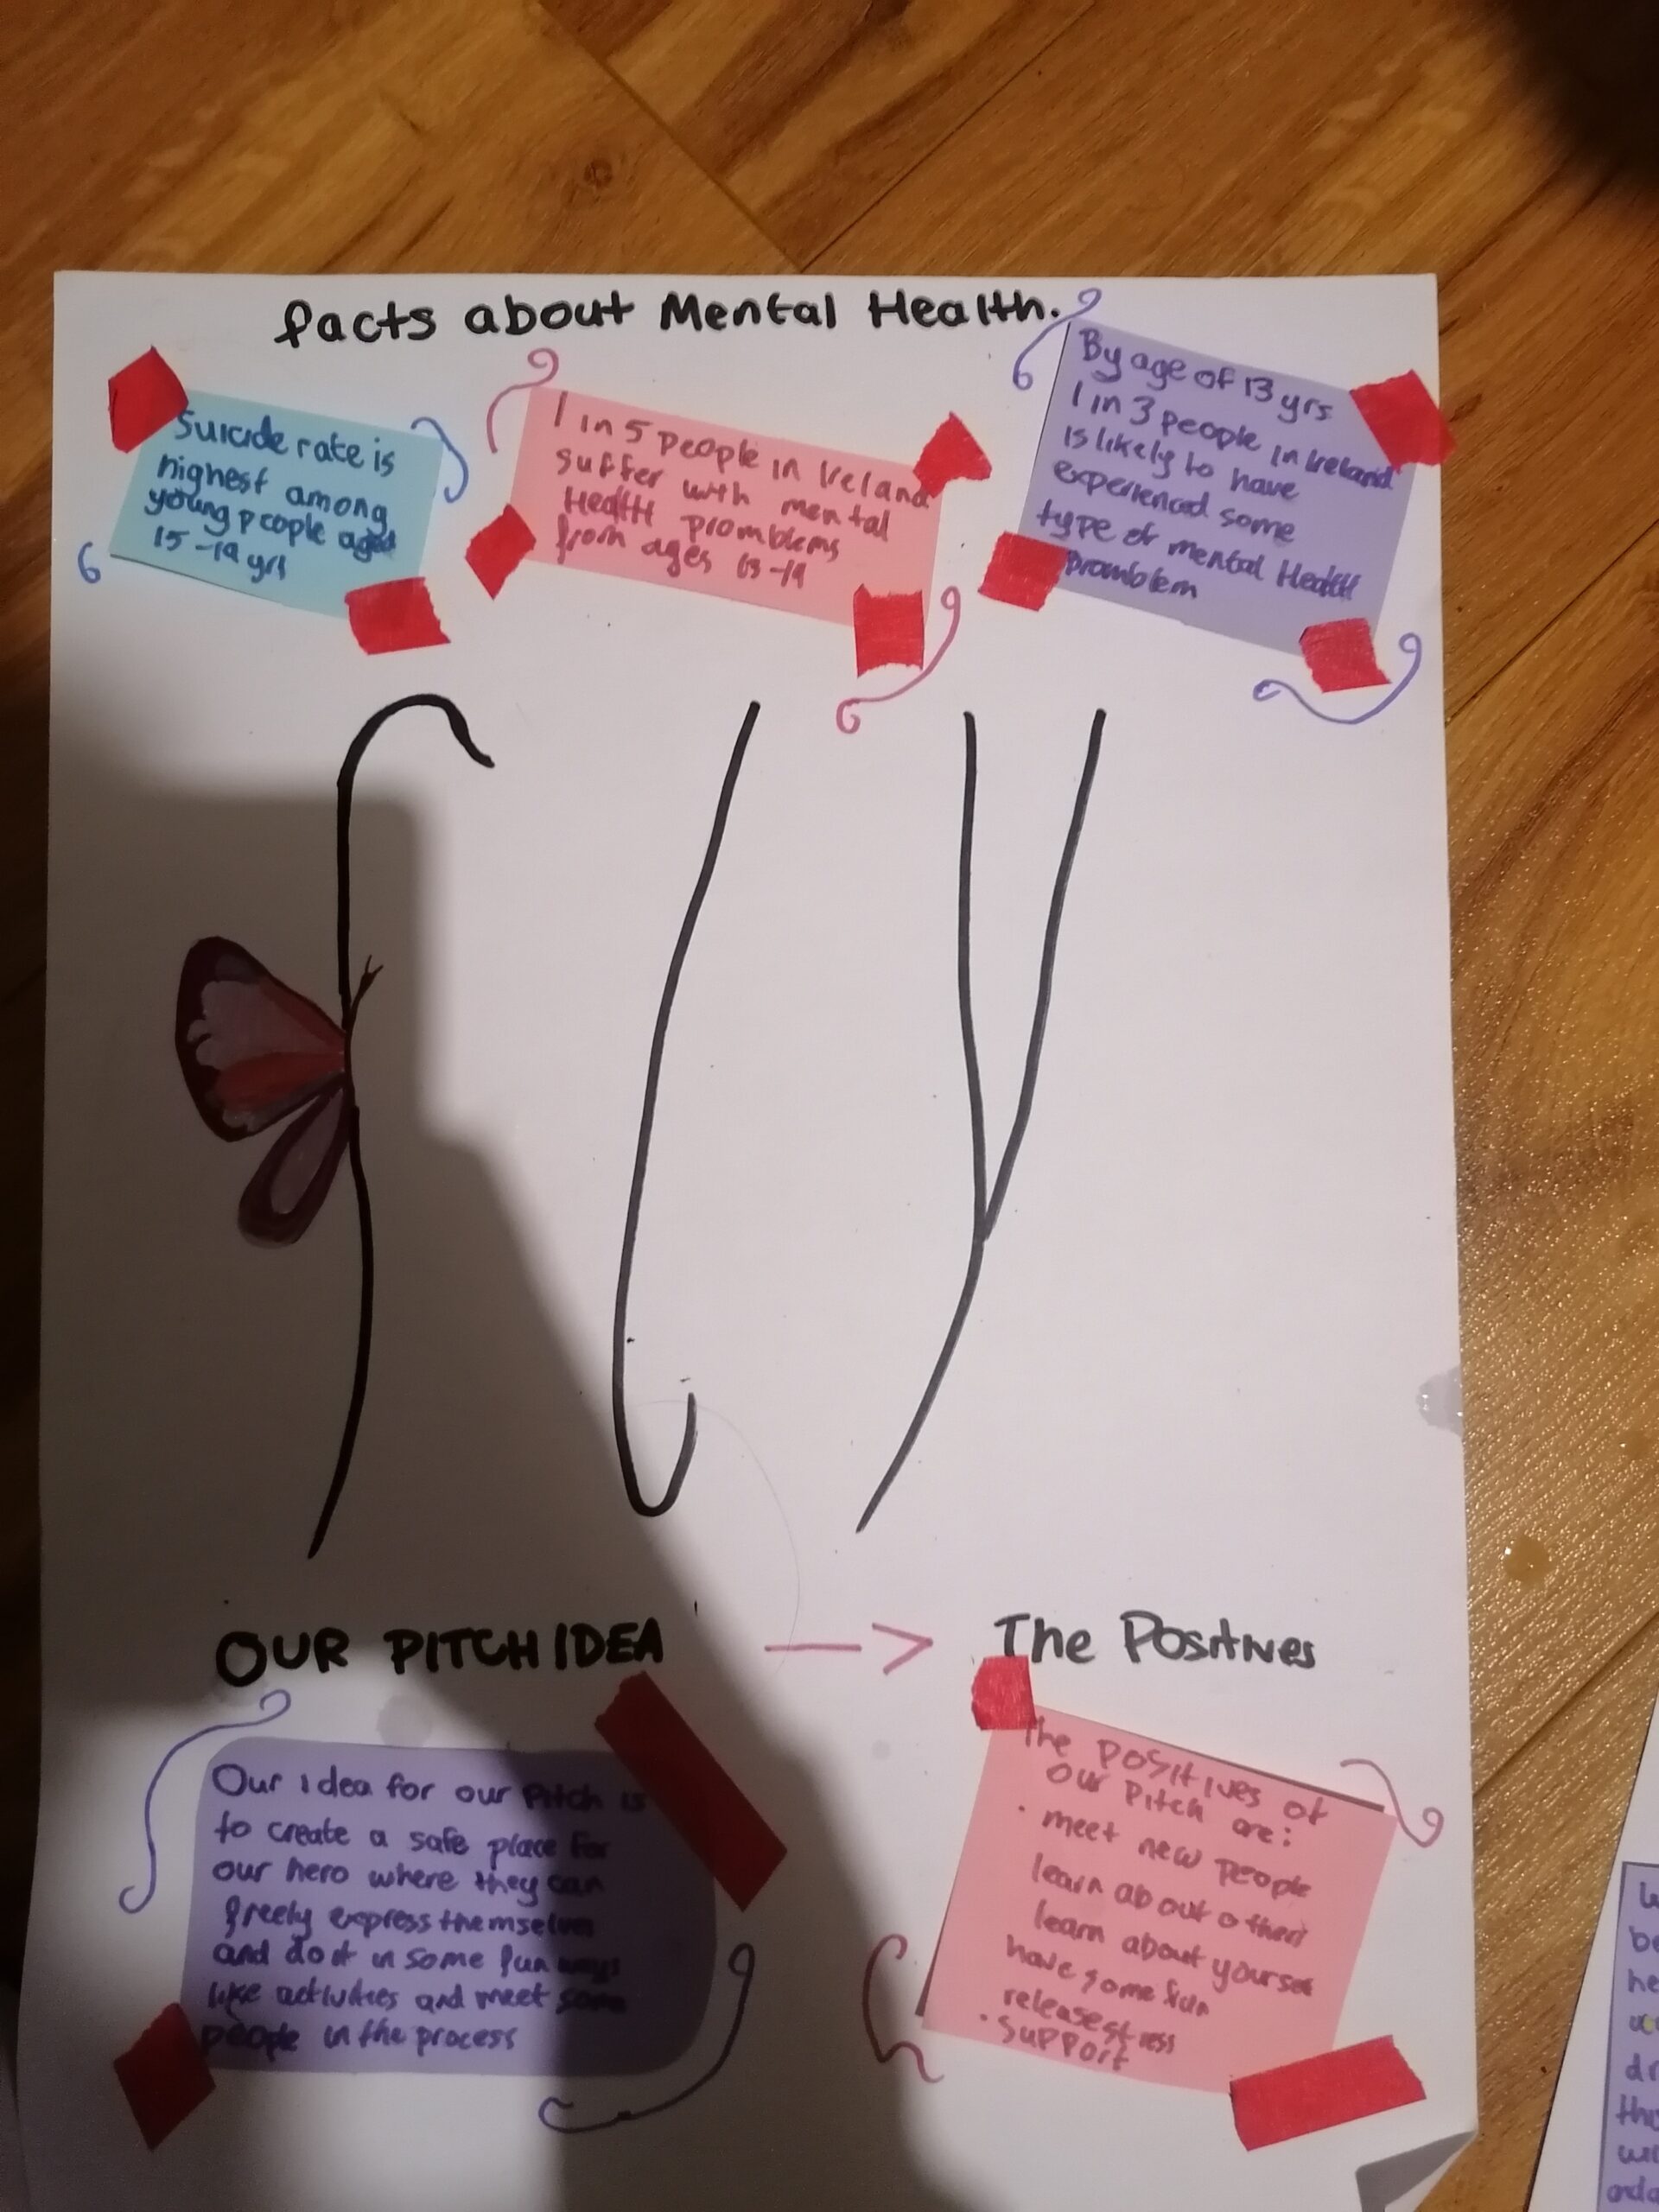 facts about Mental Health.
Suicide rate is
highest among
young people aged
15-19 yrs
1 in 5 people in Ireland
suffer with mental
Health promblems
from ages 13-19
By age of 13 yrs
1 in 3 people in Ireland
is likely to have
experienced some
type of mental Health
promblem
fly
OUR PITCH IDEA
Our idea for our Pitch is
to create a safe place for
our hero where they can
freely express themselves
and do it in some fun ways
like activities and meet some
people in the process
The Positives
The positives of
our Pitch are:
• meet new people
learn about others
learn about yourself
have some fun
release stress
• support
be
he